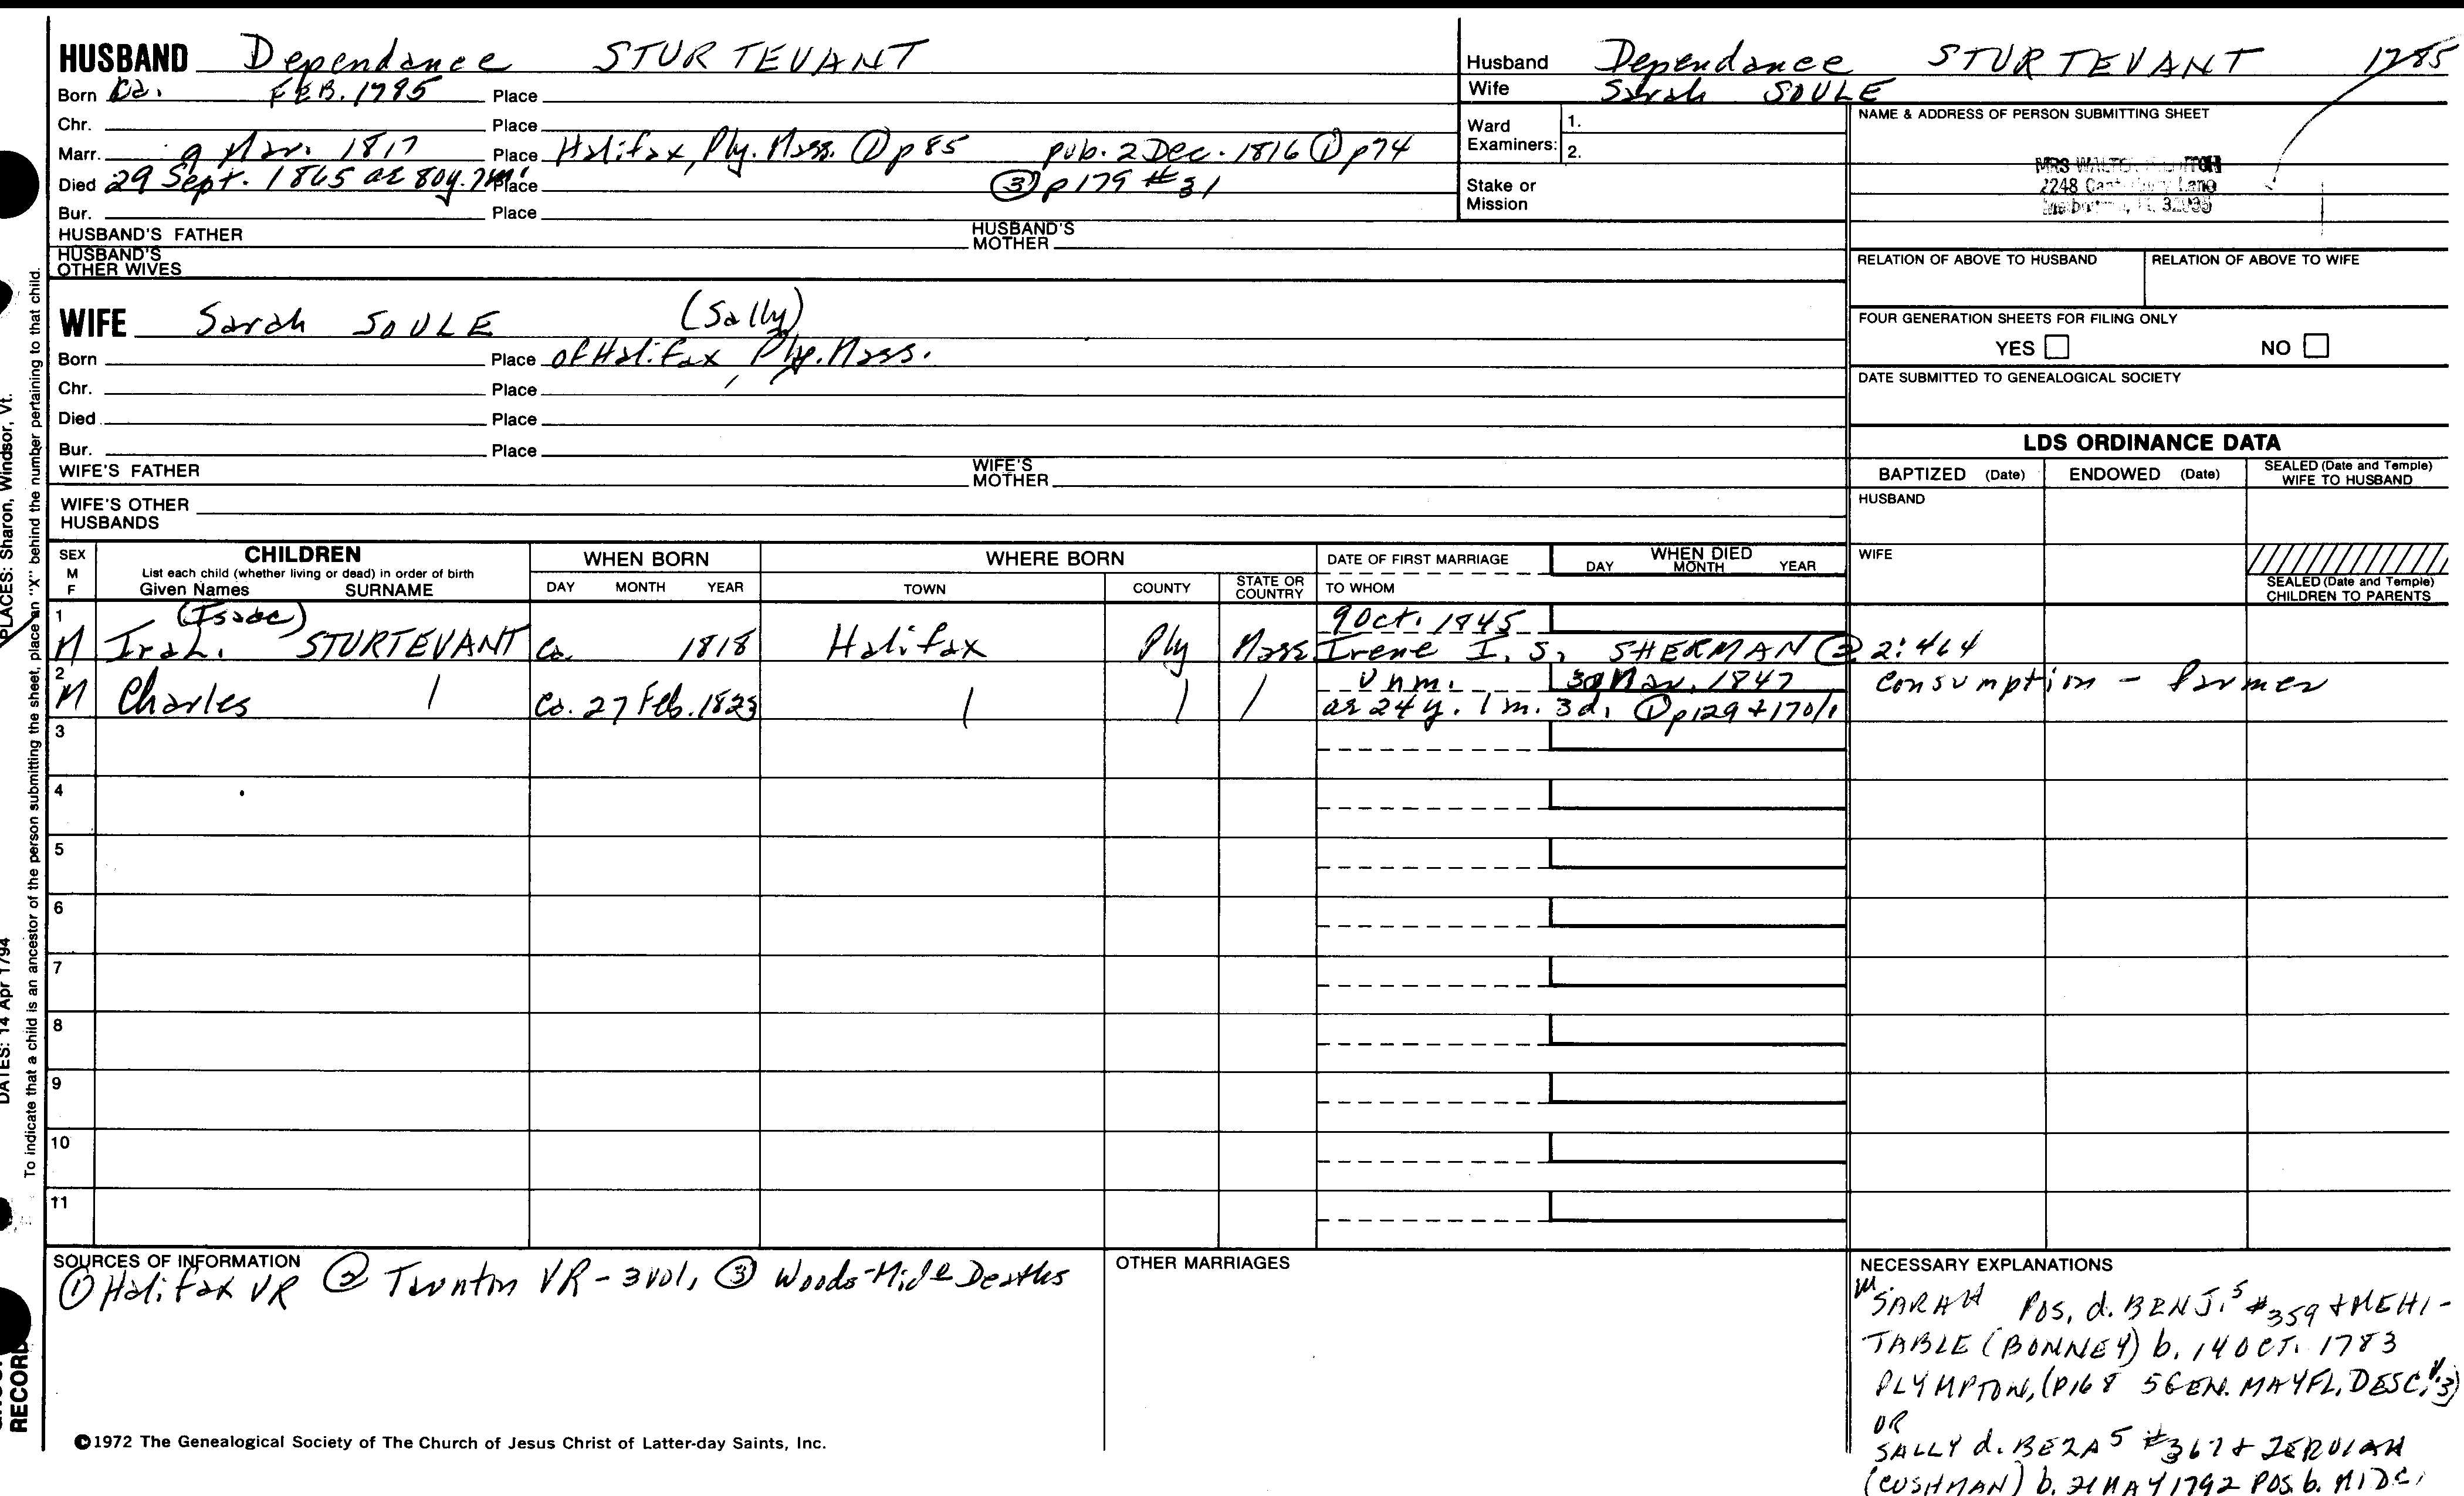 HUSBAND Dependance STURTEVANT
Born Ca. FEB. 1785 Place
Chr. Place
Marr. 9 Mar. 1817 Place Halifax, Ply. Mass. ① p 85 pub. 2 Dec. 1816 ① p74
Died 29 Sept. 1865 ae 80y. 7m. Place ③ p179 #31
Bur. Place
HUSBAND'S FATHER HUSBAND'S MOTHER
HUSBAND'S OTHER WIVES
WIFE Sarah SOULE (Sally)
Born Place of Halifax, Ply. Mass.
Chr. Place
Died Place
Bur. Place
WIFE'S FATHER WIFE'S MOTHER
WIFE'S OTHER HUSBANDS
Husband Dependance STURTEVANT 1785
Wife Sarah SOULE
Ward Examiners: 1.
2.
Stake or Mission
NAME & ADDRESS OF PERSON SUBMITTING SHEET
MRS
2248 Lane
RELATION OF ABOVE TO HUSBAND RELATION OF ABOVE TO WIFE
FOUR GENERATION SHEETS FOR FILING ONLY
YES NO
DATE SUBMITTED TO GENEALOGICAL SOCIETY
LDS ORDINANCE DATA
BAPTIZED (Date) ENDOWED (Date) SEALED (Date and Temple) WIFE TO HUSBAND
HUSBAND
WIFE
SEALED (Date and Temple) CHILDREN TO PARENTS
SEX M F
CHILDREN
List each child (whether living or dead) in order of birth
Given Names SURNAME
WHEN BORN
DAY MONTH YEAR
WHERE BORN
TOWN COUNTY STATE OR COUNTRY
DATE OF FIRST MARRIAGE
TO WHOM
WHEN DIED
DAY MONTH YEAR
1 (Isaac) 9 Oct. 1845
M Ira L. STURTEVANT Ca. 1818 Halifax Ply Mass Irene I. S. SHERMAN ② 2:464
2 Unm. 30 Mar. 1847 consumption - farmer
M Charles Ca. 27 Feb. 1823 ae 24 y. 1 m. 3d. ① p129 + 170/1
3
4
5
6
7
8
9
10
11
SOURCES OF INFORMATION
① Halifax VR ② Taunton VR - 3 vol, ③ Woods-Mid e Deaths
OTHER MARRIAGES
NECESSARY EXPLANATIONS
SARAH POS. d. BENJ.5 #359 + MEHI-
TABLE (BONNEY) b. 14 OCT. 1783
PLYMPTON, (P168 5 GEN. MAYFL. DESC. V.3)
OR
SALLY d. BEZA 5 #367 + ZERUIAH
(CUSHMAN) b. 21 MAY 1792 POS. b. MIDE,
©1972 The Genealogical Society of The Church of Jesus Christ of Latter-day Saints, Inc.
PLACES: Sharon, Windsor, Vt.
DATES: 14 Apr 1794
To indicate that a child is an ancestor of the person submitting the sheet, place an "X" behind the number pertaining to that child.
RECORD